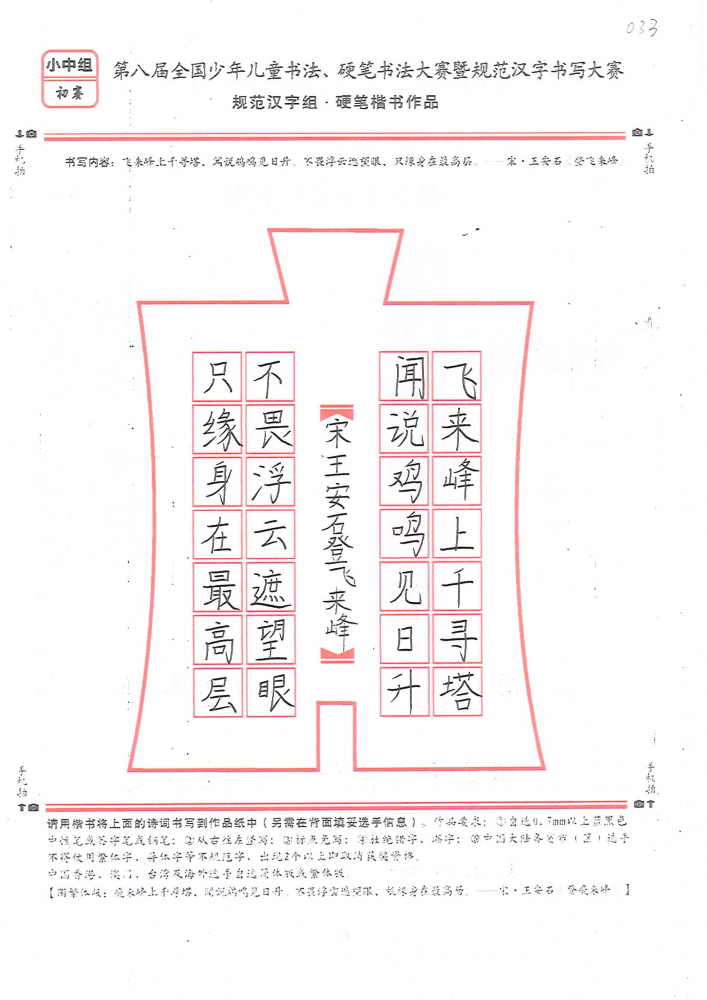 033
小中组
初赛
第八届全国少年儿童书法、硬笔书法大赛暨规范汉字书写大赛
规范汉字组·硬笔楷书作品
手机拍
手机拍
书写内容：飞来峰上千寻塔，闻说鸡鸣见日升。不畏浮云遮望眼，只缘身在最高层。——宋·王安石《登飞来峰
飞来峰上千寻塔
闻说鸡鸣见日升
宋王安石登飞来峰
不畏浮云遮望眼
只缘身在最高层
手机拍
手机拍
请用楷书将上面的诗词书写到作品纸中（另需在背面填妥选手信息）。作品要求：①自选0.7mm以上蓝黑色
中性笔或签字笔或钢笔；②从右往左竖写；③标点免写；④杜绝错字、漏字；⑤中国大陆各省市（区）选手
不得使用繁体字、异体字等不规范字，出现2个以上即取消获奖资格。
中国香港、澳门、台湾及海外选手自选简体版或繁体版。
【附繁体版：飛来峰上千尋塔，聞説鷄鳴見日升。不畏浮雲遮望眼，祇緣身在最高層。——宋·王安石《登飛来峰 】